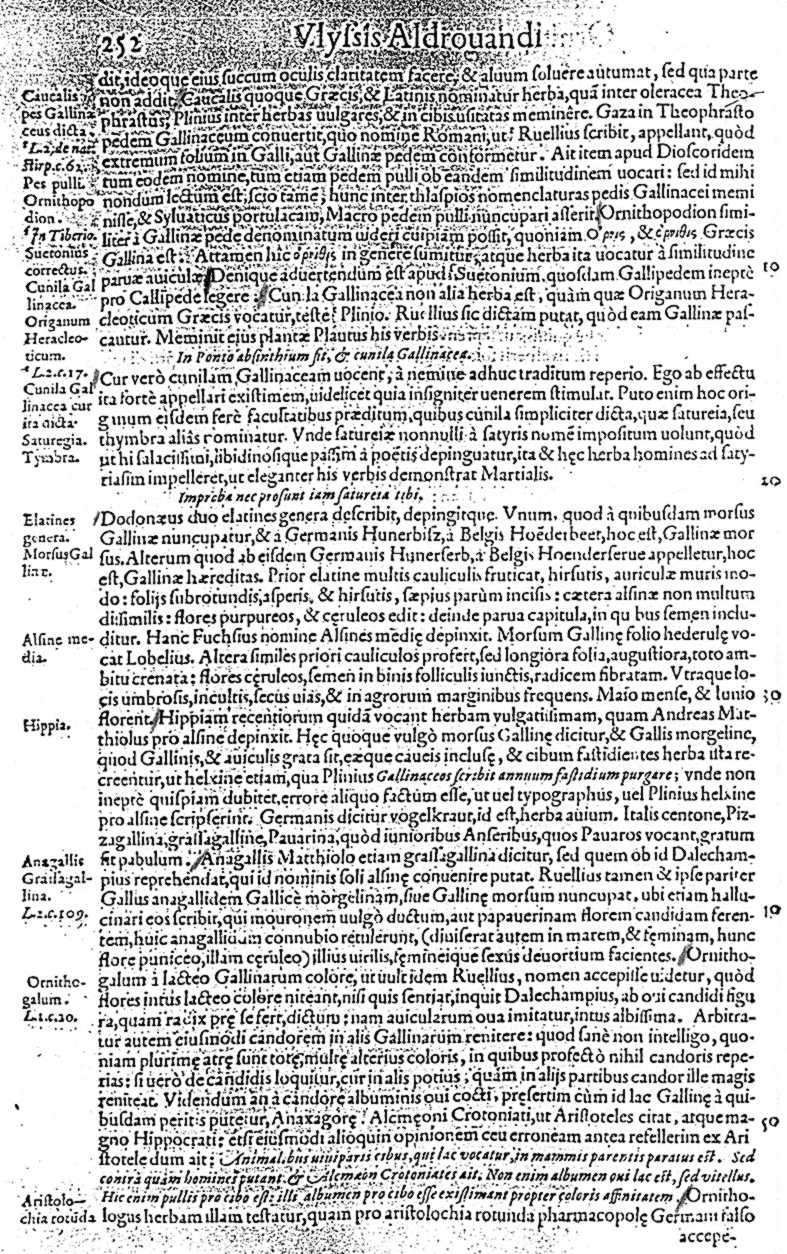 252 Vlyssis Aldrouandi
dit, ideoque eius succum oculis claritatem facere, & aluum soluere autumat, sed qua parte
non addit. Caucalis quoque Græcis, & Latinis nominatur herba, quã inter oleracea Theo-
phrastus, Plinius inter herbas uulgares, & in cibis usitatas meminere. Gaza in Theophrasto
pedem Gallinaceum conuertit, quo nomine Romani, ut Ruellius scribit, appellant, quòd
extremum folium in Galli, aut Gallinæ pedem conformetur. Ait item apud Dioscoridem
tum eodem nomine, tum etiam pedem pulli ob eandem similitudinem uocari: sed id mihi
nondum lectum est, scio tamẽ, hunc inter thlaspios nomenclaturas pedis Gallinacei memi
nisse, & Syluaticus portulacam, Macro pedem pulli nuncupari asserit. Ornithopodion simi-
liter à Gallinæ pede denominatum uideri cuipiam possit, quoniam ὄρνις, & ὄρνιθος Græcis
Gallina est: Attamen hic ὄρνιθος in genere sumitur, atque herba ita uocatur à similitudine
paruæ auiculæ. Denique aduertendum est apud Suetonium quosdam Gallipedem ineptè 10
pro Callipede legere: Cunila Gallinacea non alia herba est, quàm quæ Origanum Hera-
cleoticum Græcis vocatur, teste Plinio. Ruellius sic dictam putat, quòd eam Gallinæ pas-
cantur. Meminit ejus plantæ Plautus his verbis
In Ponto absinthium fit, & cunila Gallinacea.
Cur verò cunilam Gallinaceam uocent, à nemine adhuc traditum reperio. Ego ab effectu
ita fortè appellari existimem, uidelicet quia insigniter uenerem stimulat. Puto enim hoc ori-
ganum eisdem ferè facultatibus præditum, quibus cunila simpliciter dicta, quæ satureia, seu
thymbra aliàs nominatur. Vnde satureiæ nonnulli à satyris nomẽ impositum uolunt, quòd
ut hi salacissimi, libidinosique passim à poëtis depinguntur, ita & hęc herba homines ad saty-
riasim impelleret, ut eleganter his verbis demonstrat Martialis.
Improba nec prosunt iam satureia tibi. 20
Dodonæus duo elatines genera describit, depingitque. Vnum, quod à quibusdam morsus
Gallinæ nuncupatur, & à Germanis Hunerbisz, à Belgis Hoēderbeet, hoc est, Gallinæ mor
sus. Alterum quod ab eisdem Germanis Hunerserb, à Belgis Hoenderserue appelletur, hoc
est, Gallinæ hæreditas. Prior elatine multis cauliculis fruticat, hirsutis, auriculæ muris mo-
do: folijs subrotundis, asperis, & hirsutis, sæpius parùm incisis: cætera alsinæ non multum
dissimilis: flores purpureos, & cęruleos edit: deinde parua capitula, in quibus semen inclu-
ditur. Hanc Fuchsius nomine Alsines medię depinxit. Morsum Gallinę folio hederulę vo-
cat Lobelius. Altera similes priori cauliculos profert, sed longiora folia, augustiora, toto am-
bitu crenata: flores cęruleos, semen in binis folliculis iunctis, radicem fibratam. Vtraque lo-
cis umbrosis, incultis, secus uias, & in agrorum marginibus frequens. Maio mense, & Iunio 30
florent. Hippiam recentiorum quidã vocant herbam vulgatissimam, quam Andreas Mat-
thiolus pro alsine depinxit. Hęc quoque vulgò morsus Gallinę dicitur, & Gallis morgeline,
quod Gallinis, & auiculis grata sit, eæque caueis inclusę, & cibum fastidientes herba ista re-
creentur, ut helxine etiam, qua Plinius Gallinaceos scribit annuum fastidium purgare; vnde non
ineptè quispiam dubitet, errore aliquo factum esse, ut uel typographus, uel Plinius helxine
pro alsine scripserint. Germanis dicitur vogelkraut, id est, herba auium. Italis centone, Piz-
zagallina, grassagalline, Pauarina, quòd iunioribus Anseribus, quos Pauaros vocant, gratum
fit pabulum. Anagallis Matthiolo etiam grassagallina dicitur, sed quem ob id Dalecham-
pius reprehendat, qui id nominis soli alsinę conuenire putat. Ruellius tamen & ipse pariter
Gallus anagallidem Gallicè morgelinam, siue Gallinę morsum nuncupat, ubi etiam hallu-
cinari eos scribit, qui mouronem uulgò ductum, aut papauerinam florem candidam feren- 10
tem, huic anagallidum connubio retulerunt, (diuiserat autem in marem, & fęminam, hunc
flore puniceo, illam cęruleo) illius uirilis, fęmineique sexus deuortium facientes. Ornitho-
galum à lacteo Gallinarum colore, ut uult idem Ruellius, nomen accepisse uidetur, quòd
flores intus lacteo colore niteant, nisi quis sentiat, inquit Dalechampius, ab oui candidi figu
ra, quam radix pre se fert, dictum: nam auicularum oua imitatur, intus albissima. Arbitra-
tur autem eiusmodi candorem in alis Gallinarum renitere: quod sanè non intelligo, quo-
niam plurimę atrę sunt totę, multę alterius coloris, in quibus profectò nihil candoris repe-
rias: si uerò de candidis loquitur, cur in alis potius, quàm in alijs partibus candor ille magis
reniteat. Videndum an à candore albuminis oui cocti, pręsertim cùm id lac Gallinę à qui-
busdam peritis putetur, Anaxagorę, Alcmęoni Crotoniati, ut Aristoteles citat, atque ma- 50
gno Hippocrati: etsi eiusmodi alioquin opinionem ceu erroneam antea refellerim ex Ari
stotele dum ait: Animalibus uiuiparis cibus, qui lac vocatur, in mammis parentis paratus est. Sed
contrà quàm homines putant, & Alcmæon Crotoniates ait. Non enim albumen oui lac est, sed vitellus.
Hic enim pullis pro cibo est: illi albumen pro cibo esse existimant propter coloris affinitatem. Ornitho-
logus herbam illam testatur, quam pro aristolochia rotunda pharmacopolę Germani falso
accepe-
Caucalis
pes Gallinæ
ceus dicta.
L. 2. de nat.
stirp. c. 62.
Pes pulli.
Ornithopo
dion.
In Tiberio.
Suetonius
correctus.
Cunila Gal
linacea.
Origanum
Heracleo-
ticum.
L. 2. c. 17.
Cunila Gal
linacea cur
ita dicta.
Saturegia.
Tymbra.
Elatines
genera.
Morsus Gal
linæ.
Alsine me-
dia.
Hippia.
Anagallis
Grassagal-
lina.
L. 2. c. 109.
Ornitho-
galum.
L. 1. c. 20.
Aristolo-
chia rotūda